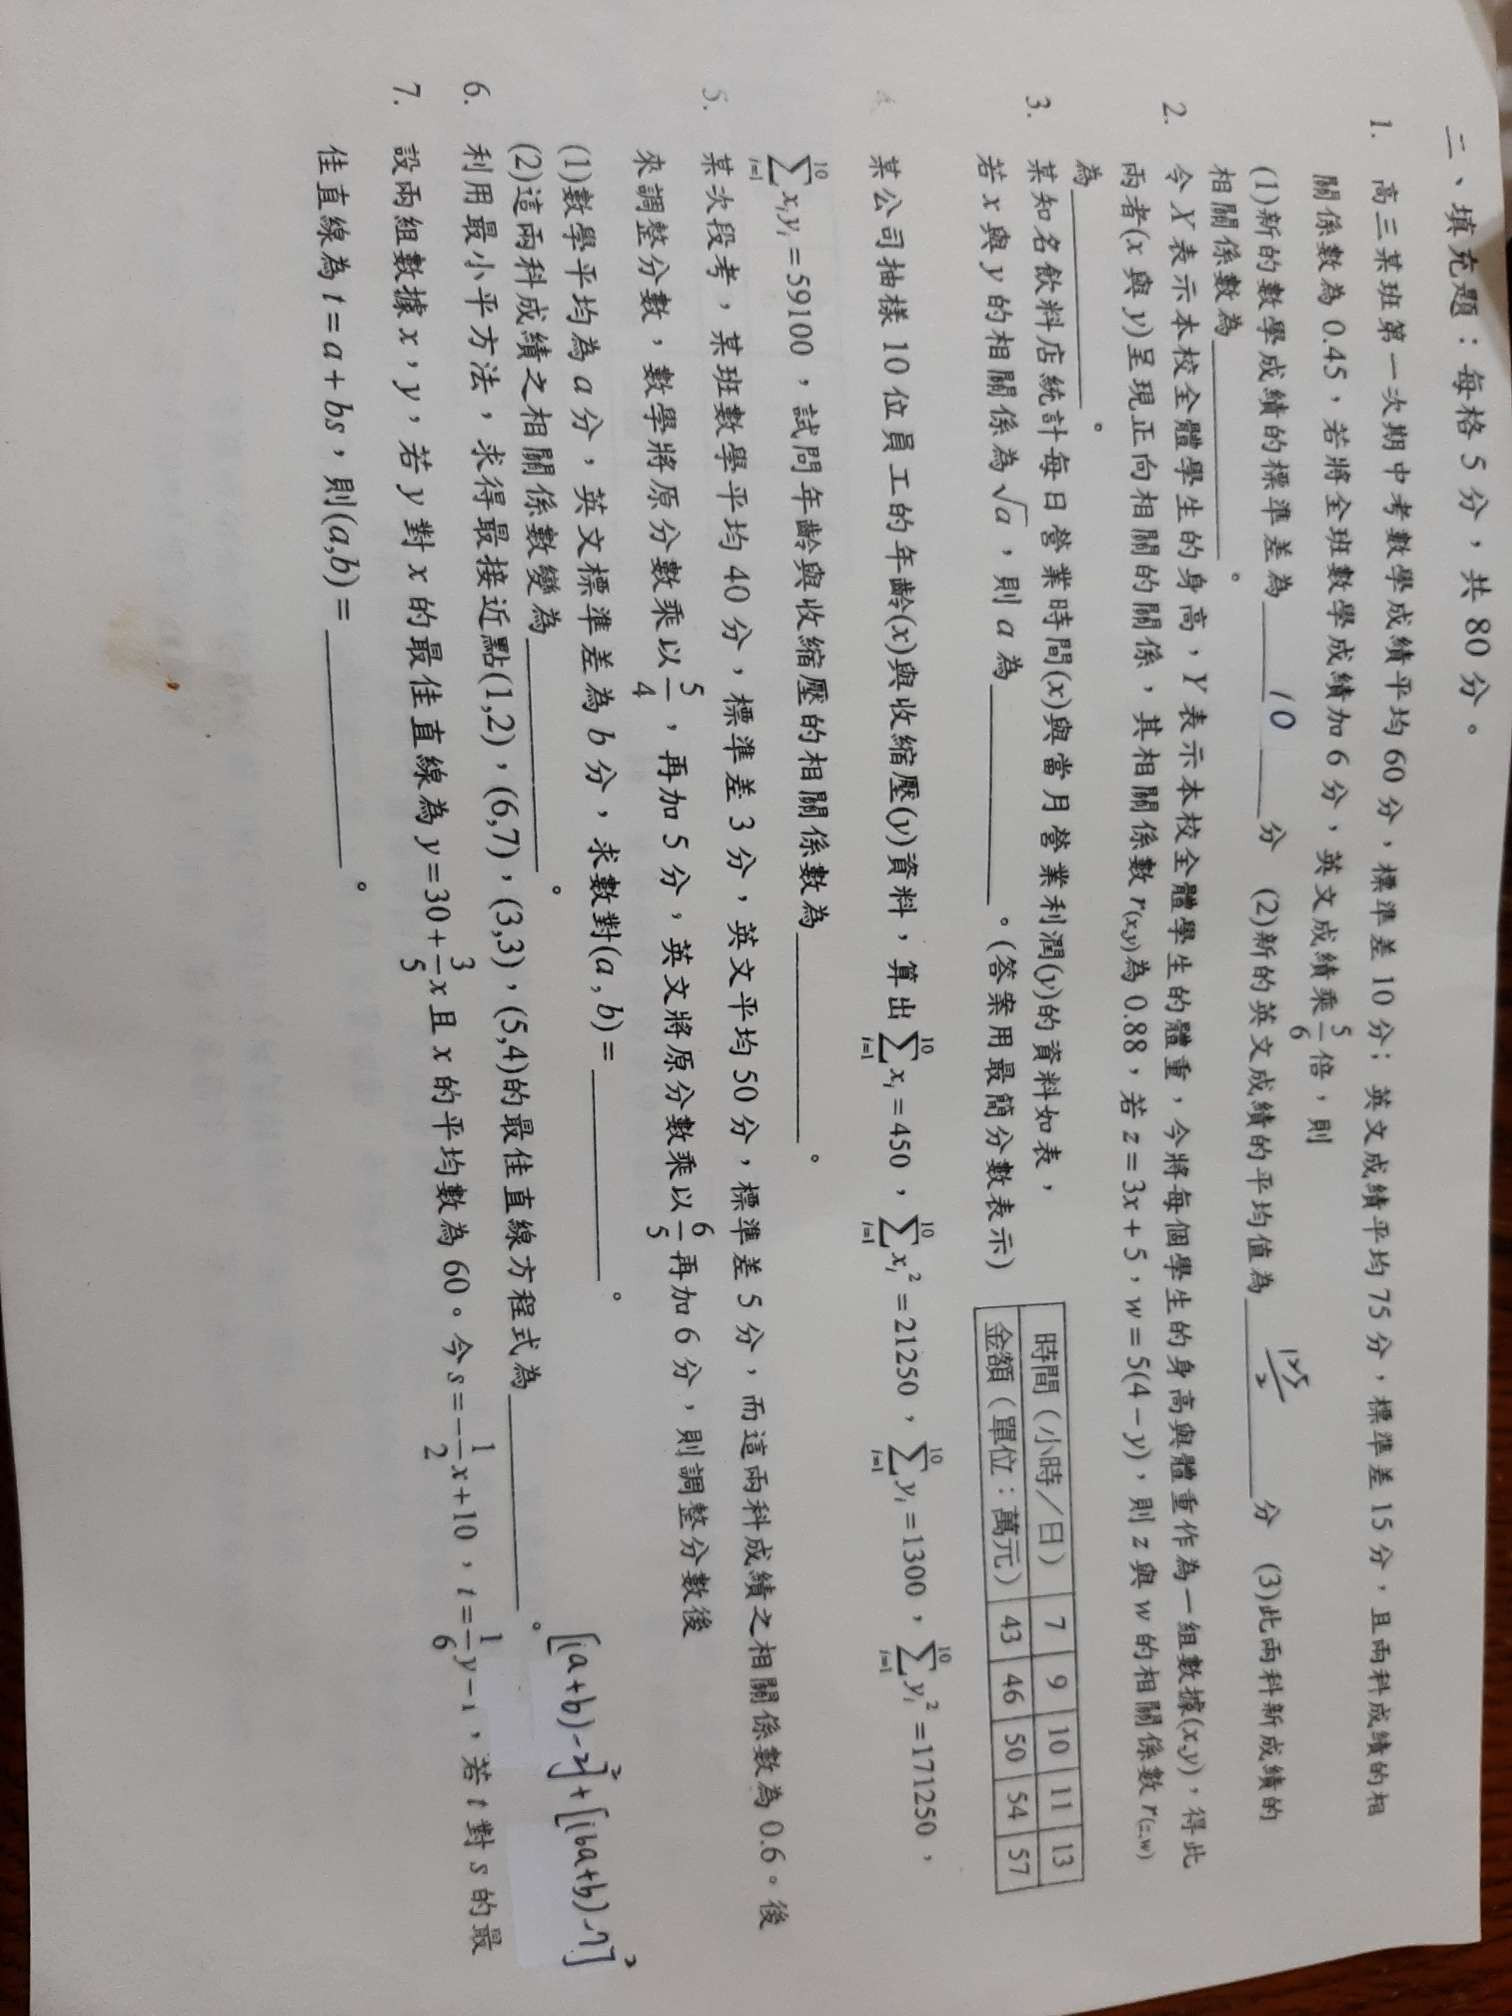 二、填充題：每格 5 分，共 80 分。
1. 高三某班第一次期中考數學成績平均 60 分，標準差 10 分；英文成績平均 75 分，標準差 15 分，且兩科成績的相
關係數為 0.45，若將全班數學成績加 6 分，英文成績乘 5/6 倍，則
(1)新的數學成績的標準差為 10 分 (2)新的英文成績的平均值為 125/2 分 (3)此兩科新成績的
相關係數為________。
2. 令 X 表示本校全體學生的身高，Y 表示本校全體學生的體重，今將每個學生的身高與體重作為一組數據(x,y)，得此
兩者(x 與 y)呈現正向相關的關係，其相關係數 r(x,y)為 0.88，若 z=3x+5，w=5(4-y)，則 z 與 w 的相關係數 r(z,w)
為________。
3. 某知名飲料店統計每日營業時間(x)與當月營業利潤(y)的資料如表，
若 x 與 y 的相關係為 √a，則 a 為________。(答案用最簡分數表示)
時間（小時／日） 7 9 10 11 13
金額（單位：萬元） 43 46 50 54 57
某公司抽樣 10 位員工的年齡(x)與收縮壓(y)資料，算出 ∑_{i=1}^{10} x_i=450，∑_{i=1}^{10} x_i²=21250，∑_{i=1}^{10} y_i=1300，∑_{i=1}^{10} y_i²=171250，
∑_{i=1}^{10} x_i y_i=59100，試問年齡與收縮壓的相關係數為________。
5. 某次段考，某班數學平均 40 分，標準差 3 分，英文平均 50 分，標準差 5 分，而這兩科成績之相關係數為 0.6。後
來調整分數，數學將原分數乘以 5/4，再加 5 分，英文將原分數乘以 6/5 再加 6 分，則調整分數後
(1)數學平均為 a 分，英文標準差為 b 分，求數對(a,b)=________。
(2)這兩科成績之相關係數變為________。
[(a+b)-2]²+[(6a+b)-7]²
6. 利用最小平方法，求得最接近點(1,2)，(6,7)，(3,3)，(5,4)的最佳直線方程式為________。
7. 設兩組數據 x，y，若 y 對 x 的最佳直線為 y=30+3/5x 且 x 的平均數為 60。今 s=-1/2x+10，t=1/6y-1，若 t 對 s 的最
佳直線為 t=a+bs，則(a,b)=________。